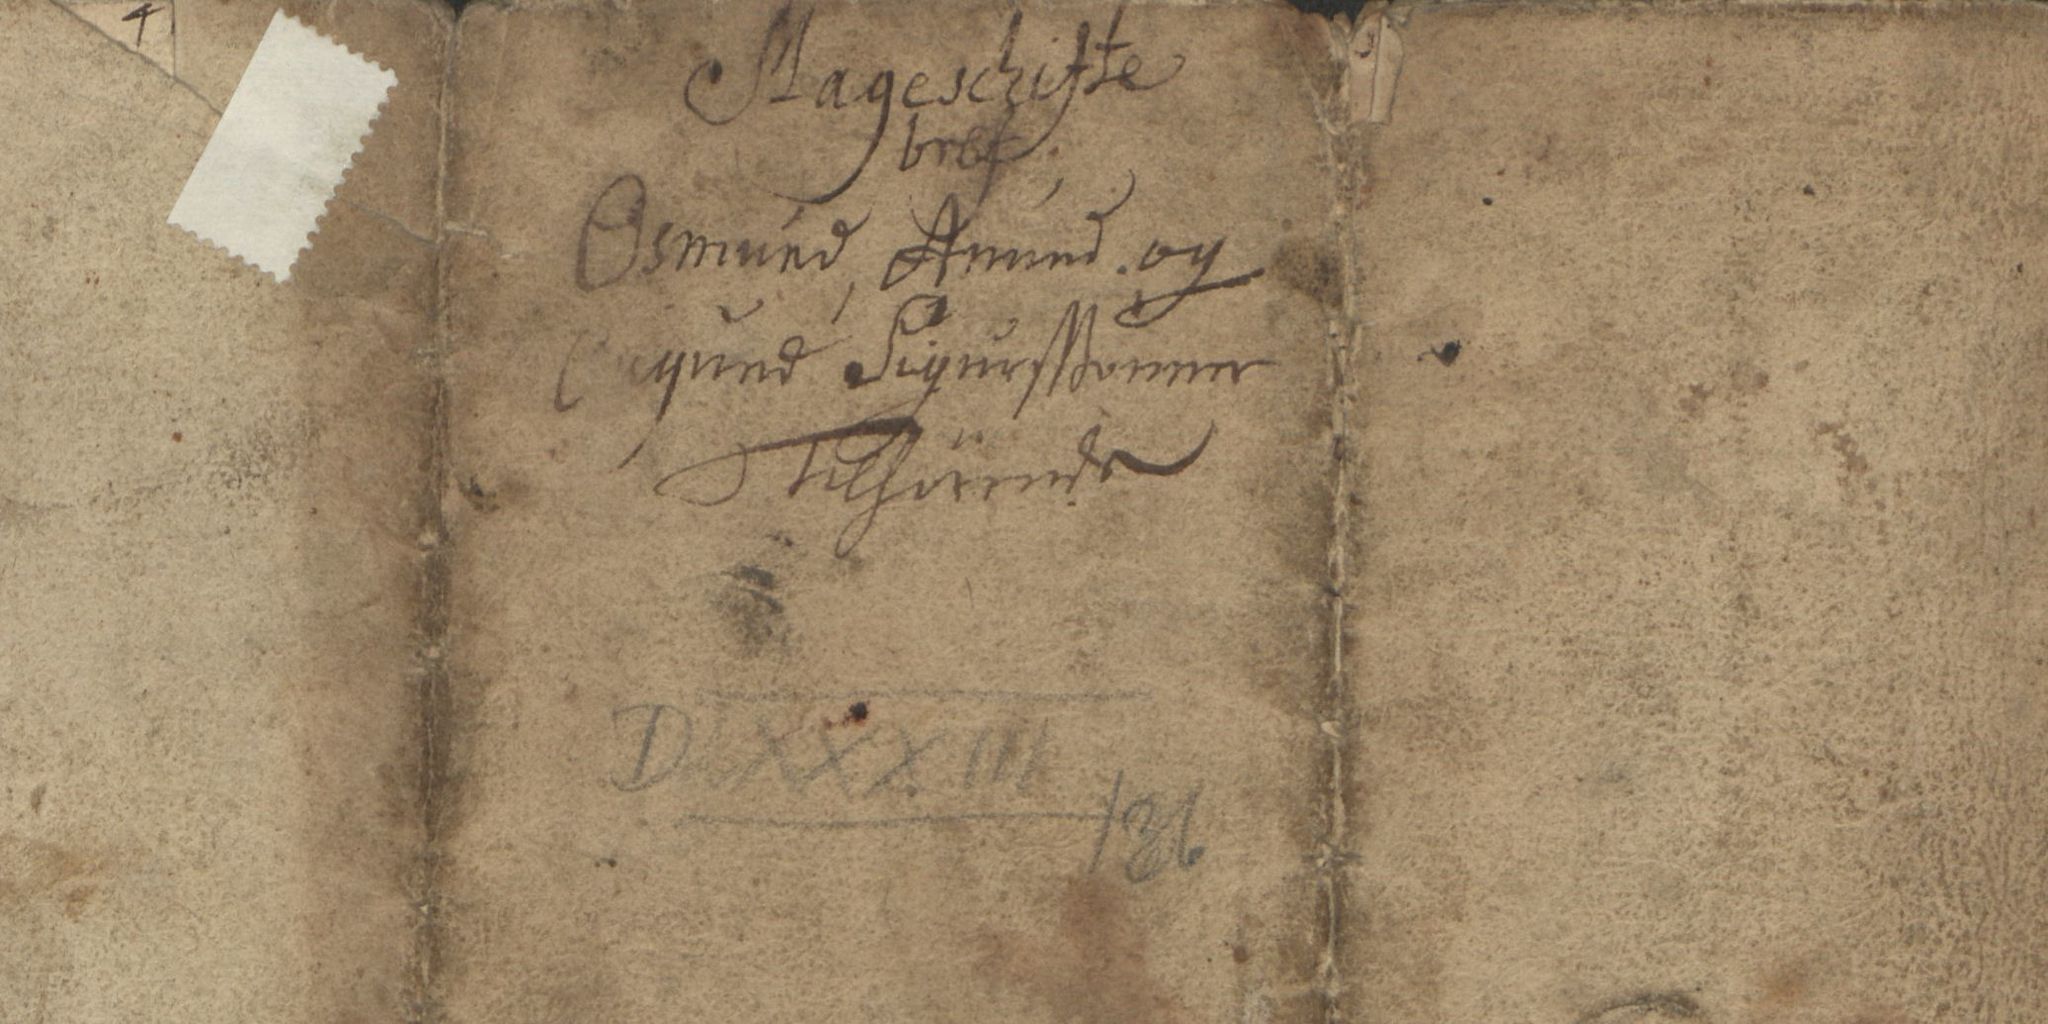 4
Mageschifte
breff
Osmund, Amund. og
gund Sigurssønner
Tilhörende
D. XXXIII
136